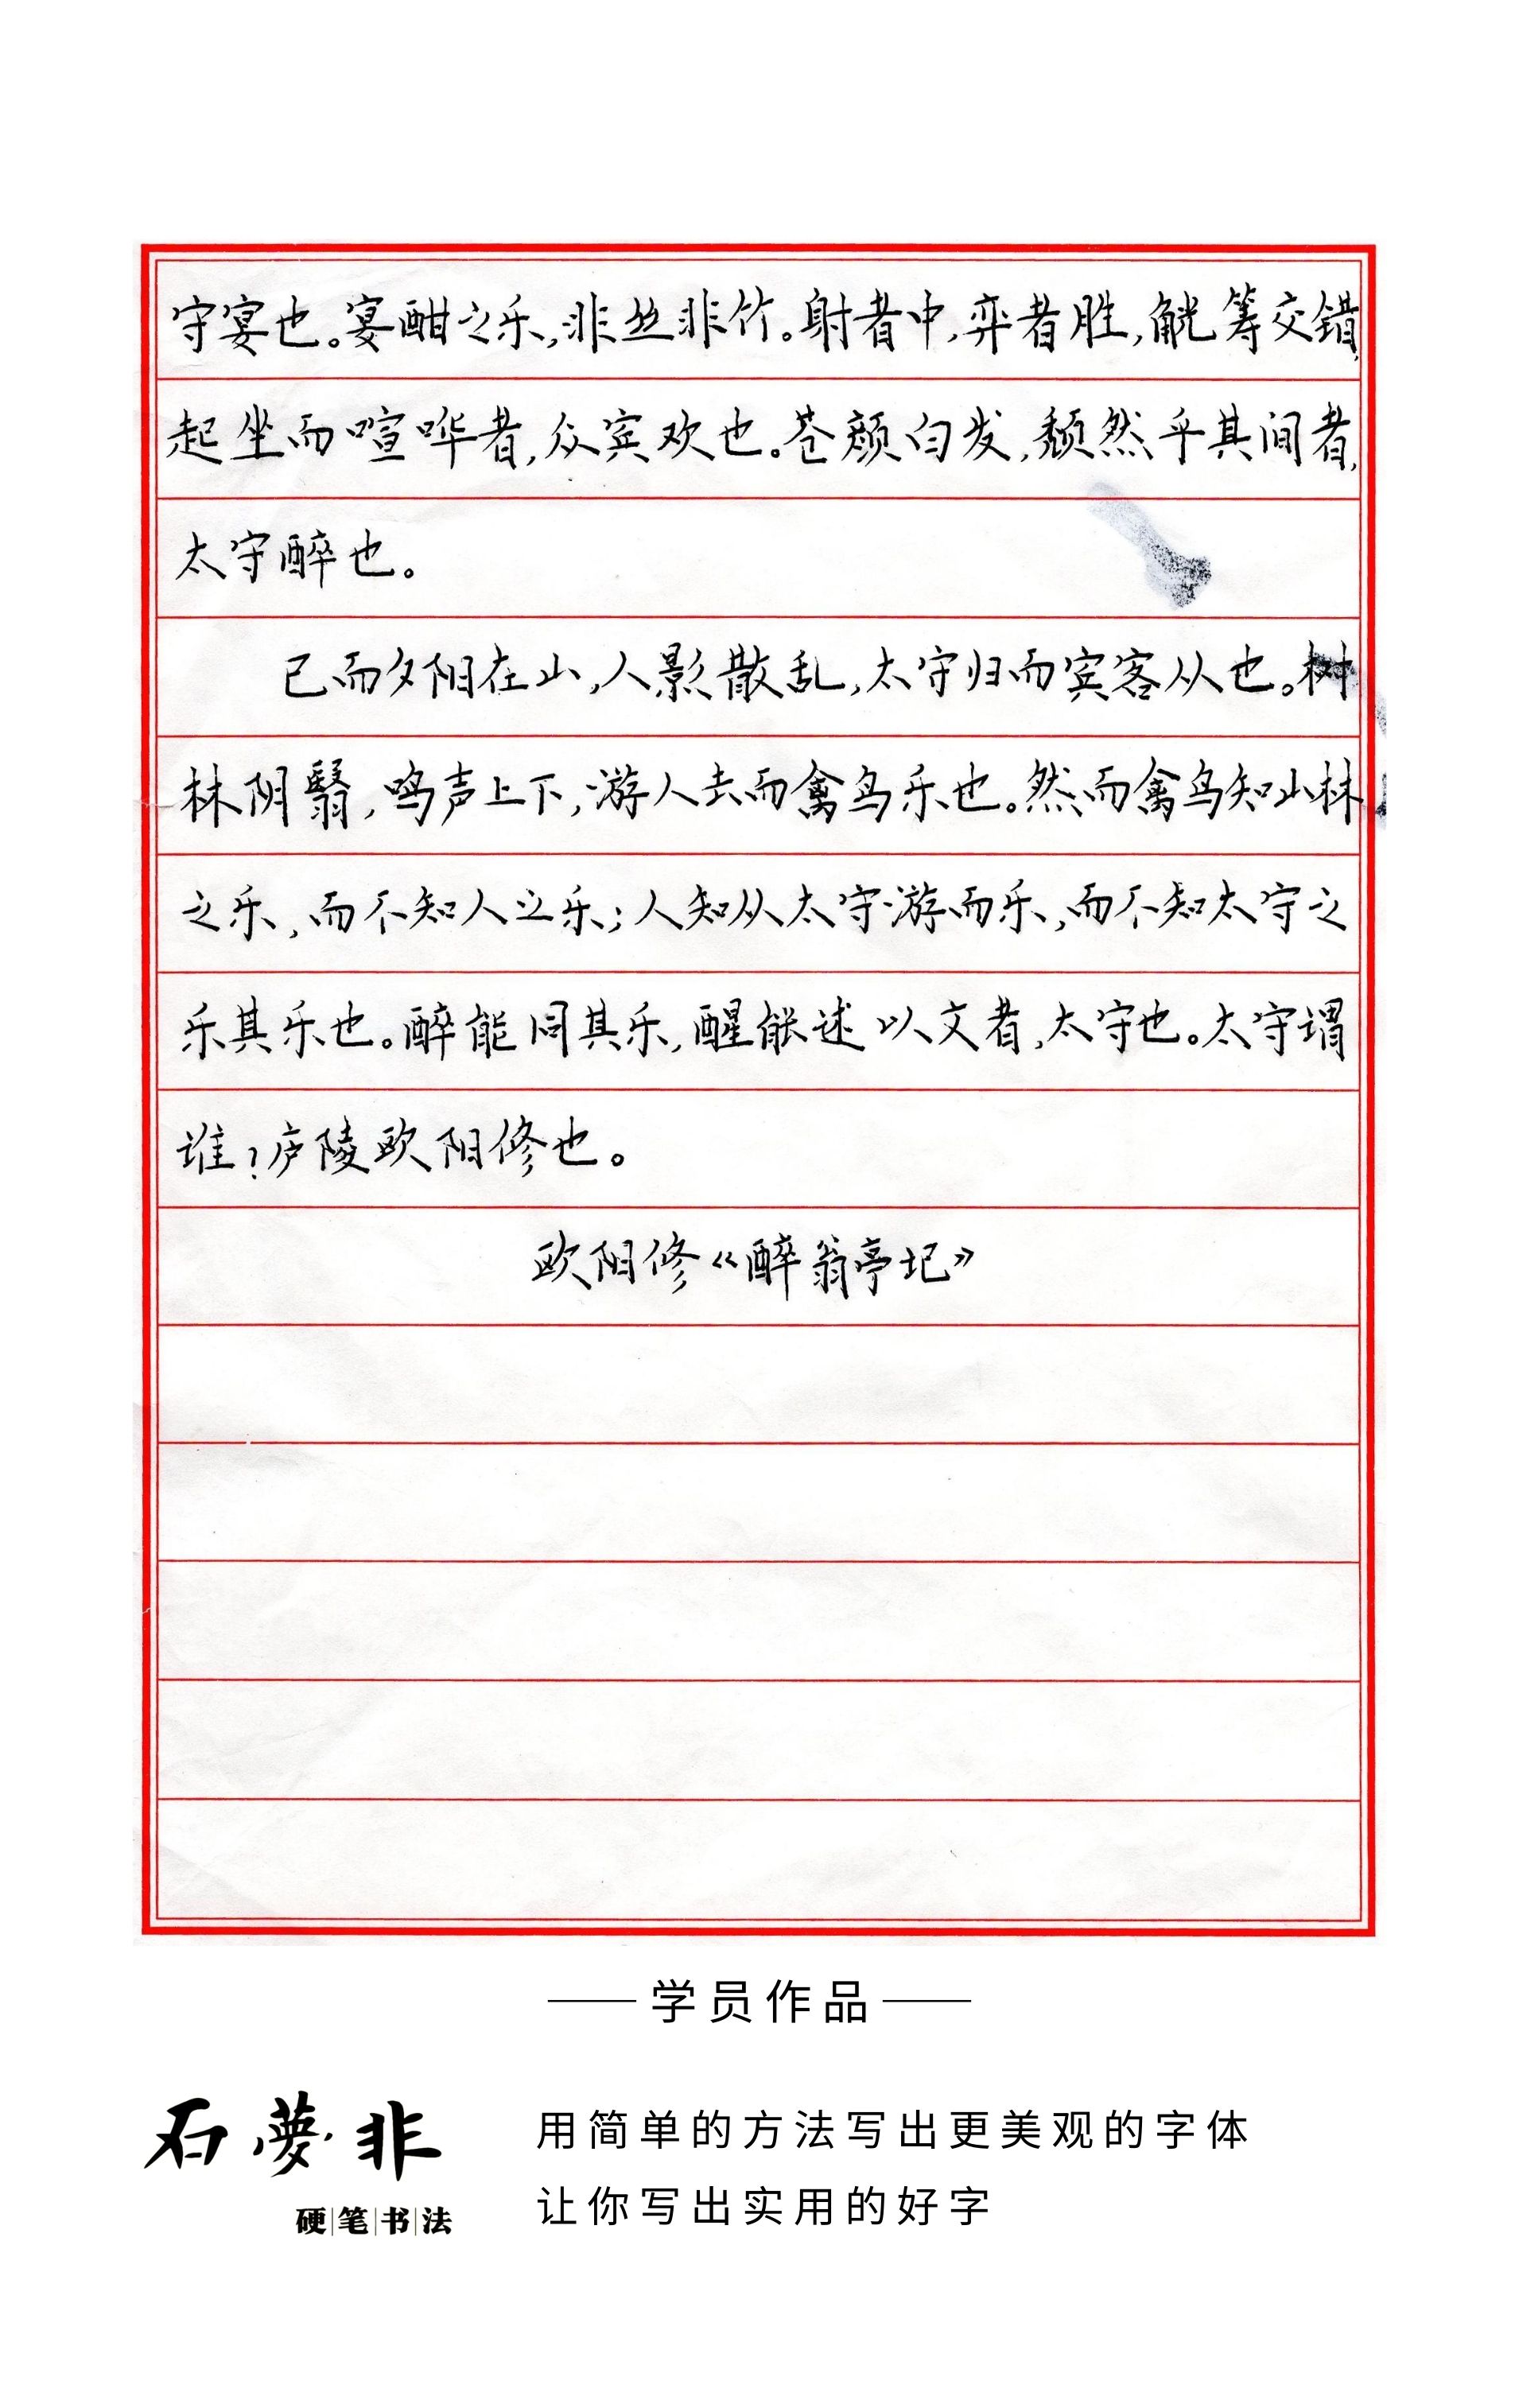 守宴也。宴酣之乐,非丝非竹。射者中,弈者胜,觥筹交错,
起坐而喧哗者,众宾欢也。苍颜白发,颓然乎其间者,
太守醉也。
已而夕阳在山,人影散乱,太守归而宾客从也。树
林阴翳,鸣声上下,游人去而禽鸟乐也。然而禽鸟知山林
之乐,而不知人之乐;人知从太守游而乐,而不知太守之
乐其乐也。醉能同其乐,醒能述以文者,太守也。太守谓
谁?庐陵欧阳修也。
欧阳修《醉翁亭记》
学员作品
石夢非
硬笔书法
用简单的方法写出更美观的字体
让你写出实用的好字